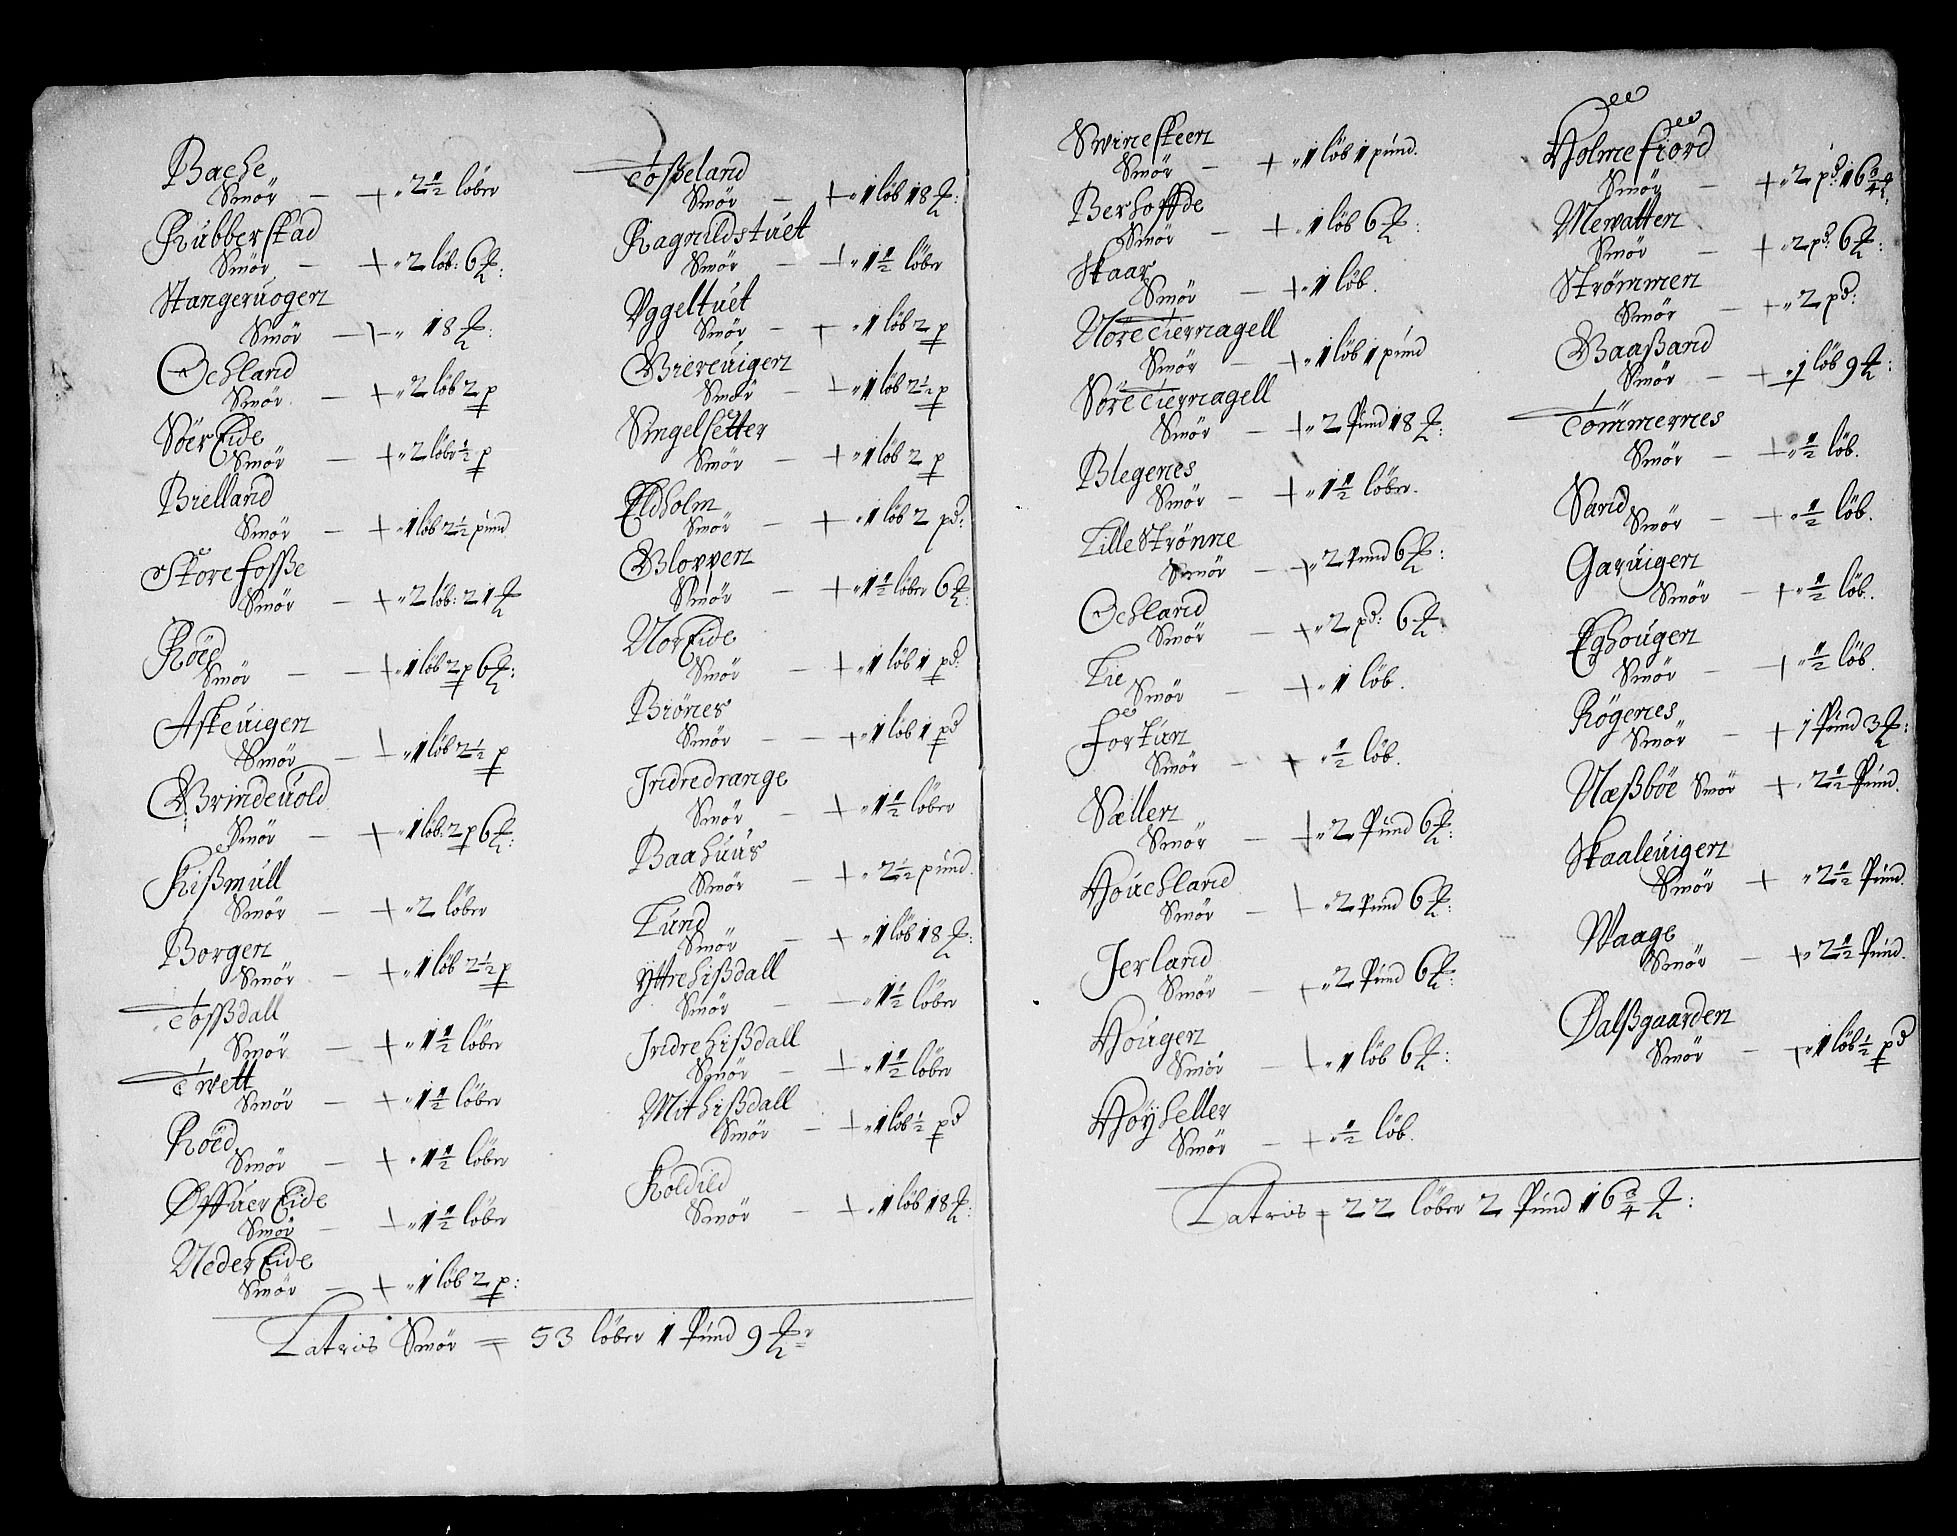 Bache
Smör — + 2½ löber
Rubberstad
Smör — + 2 löb: 6 ℔:
Stangeruogen
Smör — + 18 ℔:
Ochland
Smör — + 2 löb 2 p
Söer Eide
Smör — + 2 löber ½ p
Brelland
Smör — + 1 löb 2½ pund
Store fosße
Smör — + 2 löb: 21 ℔
Röed
Smör — + 1 löb 2 p 6 ℔:
Askeuigen
Smör — + 1 löb 2½ p
Grindeuold
Smör — + 1 löb: 2 p 6 ℔:
Kißmull
Smör — + 2 löber
Borgen
Smör — + 1 löb 2½ p
Tosßdall
Smör — + 1½ löber
Twett
Smör — + 1½ löber
Röed
Smör — + 1½ löber
Øffuer Eide
Smör — + 1½ löber
Neder Eide
Smör — + 1 löb 2 p:
Tosßeland
Smör — + 1 löb 18 ℔:
Ragnildstuet
Smör — + 1½ löber
Vggeltuet
Smör — + 1 löb 2 p
Grereuigen
Smör — + 1 löb 2½ p
Singelsetter
Smör — + 1 löb 2 p
Eldholm
Smör — + 1 löb 2 pd:
Gloppen
Smör — + 1½ löber 6 ℔:
Nor Eide
Smör — + 1 löb 1 pd:
Brönes
Smör — + 1 löb 1 pd
Indredrange
Smör — + 1½ löber
Baahuus
Smör — + 2½ pund.
Lund
Smör — + 1 löb 18 ℔:
Yttrehißdall
Smör — 1½ löber
Indrehißdall
Smör — + 1½ löber
Mithißdall
Smör — + 1 löb ½ pd
Koldild
Smör — + 1 löb 18 ℔:
Latris Smör = 53 löber 1 Pund 9 ℔r
Swinesteen
Smör — + 1 löb 1 pund.
Berhoffde
Smör — + 1 löb 6 ℔:
Skaar
Smör — + 1 löb.
Nöretiernagell
Smör — + 1 löb 1 pund
Söretiernagell
Smör — + 2 Pund 18 ℔:
Blegenes
Smör — + 1½ löber.
Lille Strönne
Smör — + 2 Pund 6 ℔:
Ochland
Smör — + 2 pd: 6 ℔:
Lie
Smör — + 1 löb.
fortun
Smör — + ½ löb.
Sællen
Smör — + 2 Pund 6 ℔:
Houchland
Smör — + 2 Pund 6 ℔:
Jerland
Smör — + 2 Pund 6 ℔:
Hougen
Smör — + 1 löb 6 ℔:
Höyheller
Smör — + ½ löb.
Holmefiord
Smör — + 2 pd: 16¾ ℔
Mewatten
Smör — + 2 pd: 6 ℔:
Strømmen
Smör — + 2 pd:
Baaßand
Smör — + 1 löb 9 ℔:
Tömmernes
Smör — + ½ löb.
Sand
Smör — + ½ löb.
Garuigen
Smör — + ½ löb.
Eghougen
Smör — + ½ löb.
Rögenes
Smör — + 1 Pund 3 ℔:
Næßböe Smör + 2½ Pund.
Skaaleuigen
Smör + 2½ Pund.
Waage
Smör — + 2½ Pund.
Dalßgaarden
Smör — + 1 löb ½ pd
Latris = 22 löber 2 Pund 16¾ ℔: